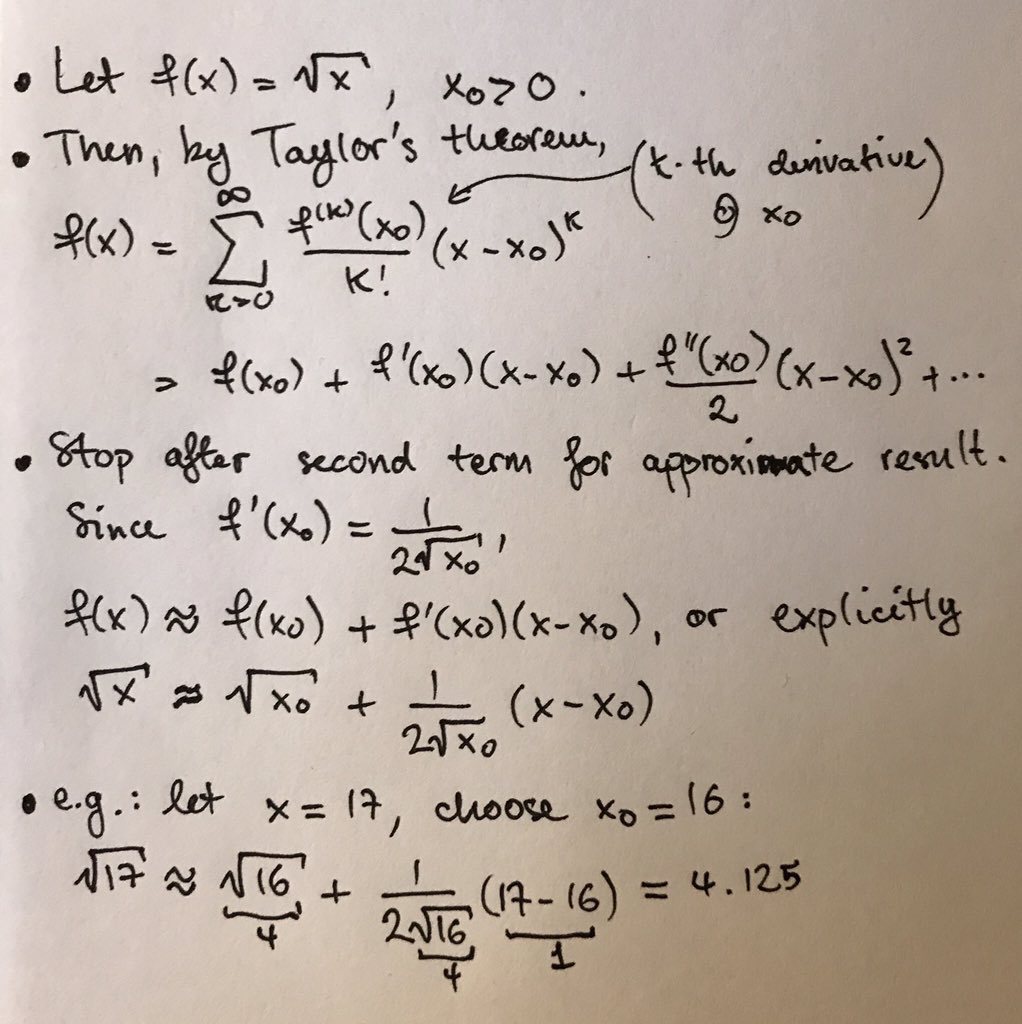 • Let f(x) = √x, x₀ > 0.
• Then, by Taylor's theorem, (k-th derivative @ x₀)
f(x) = ∑_{k=0}^{∞} f^{(k)}(x₀)/k! (x - x₀)^k
= f(x₀) + f'(x₀)(x-x₀) + f''(x₀)/2 (x-x₀)² + ...
• Stop after second term for approximate result.
Since f'(x₀) = 1/(2√x₀),
f(x) ≈ f(x₀) + f'(x₀)(x-x₀), or explicitly
√x ≈ √x₀ + 1/(2√x₀) (x-x₀)
• e.g.: let x = 17, choose x₀ = 16:
√17 ≈ √16 + 1/(2√16) (17-16) = 4.125
4 4 1